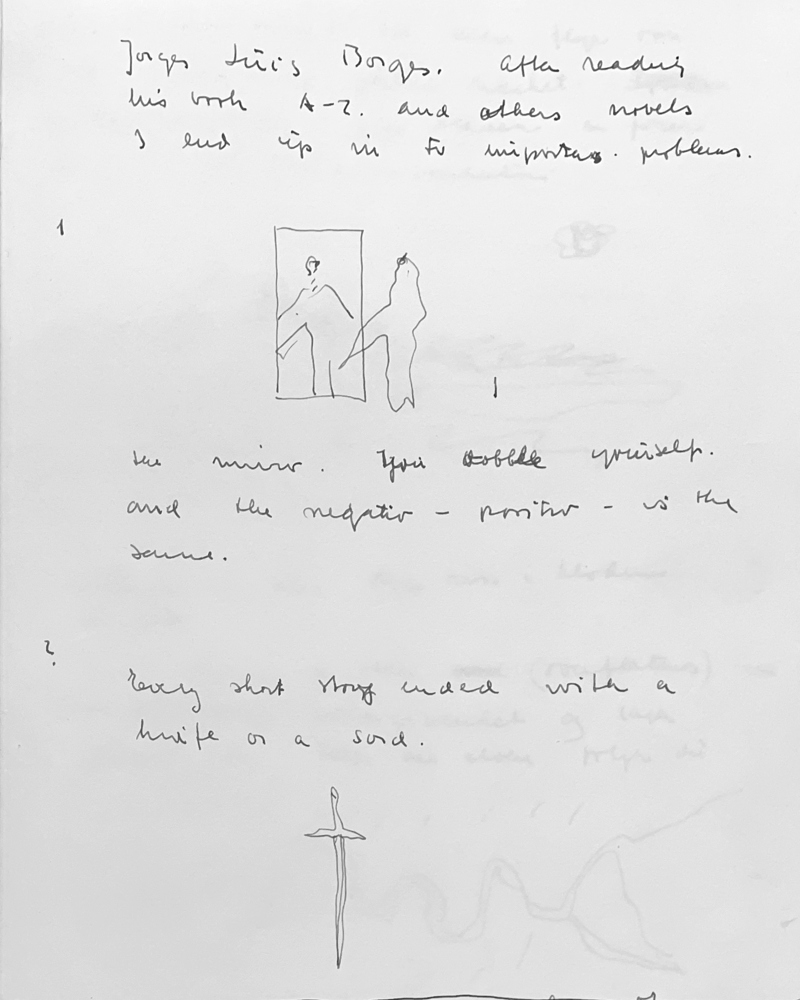 Jorges Luis Borges. After reading
his book A-Z. and others novels
I end up in to importas. problems.
1
the mirror. You dobble yourself.
and the negativ - positiv - is the
same.
2.
Every short story ended with a
knife or a sord.